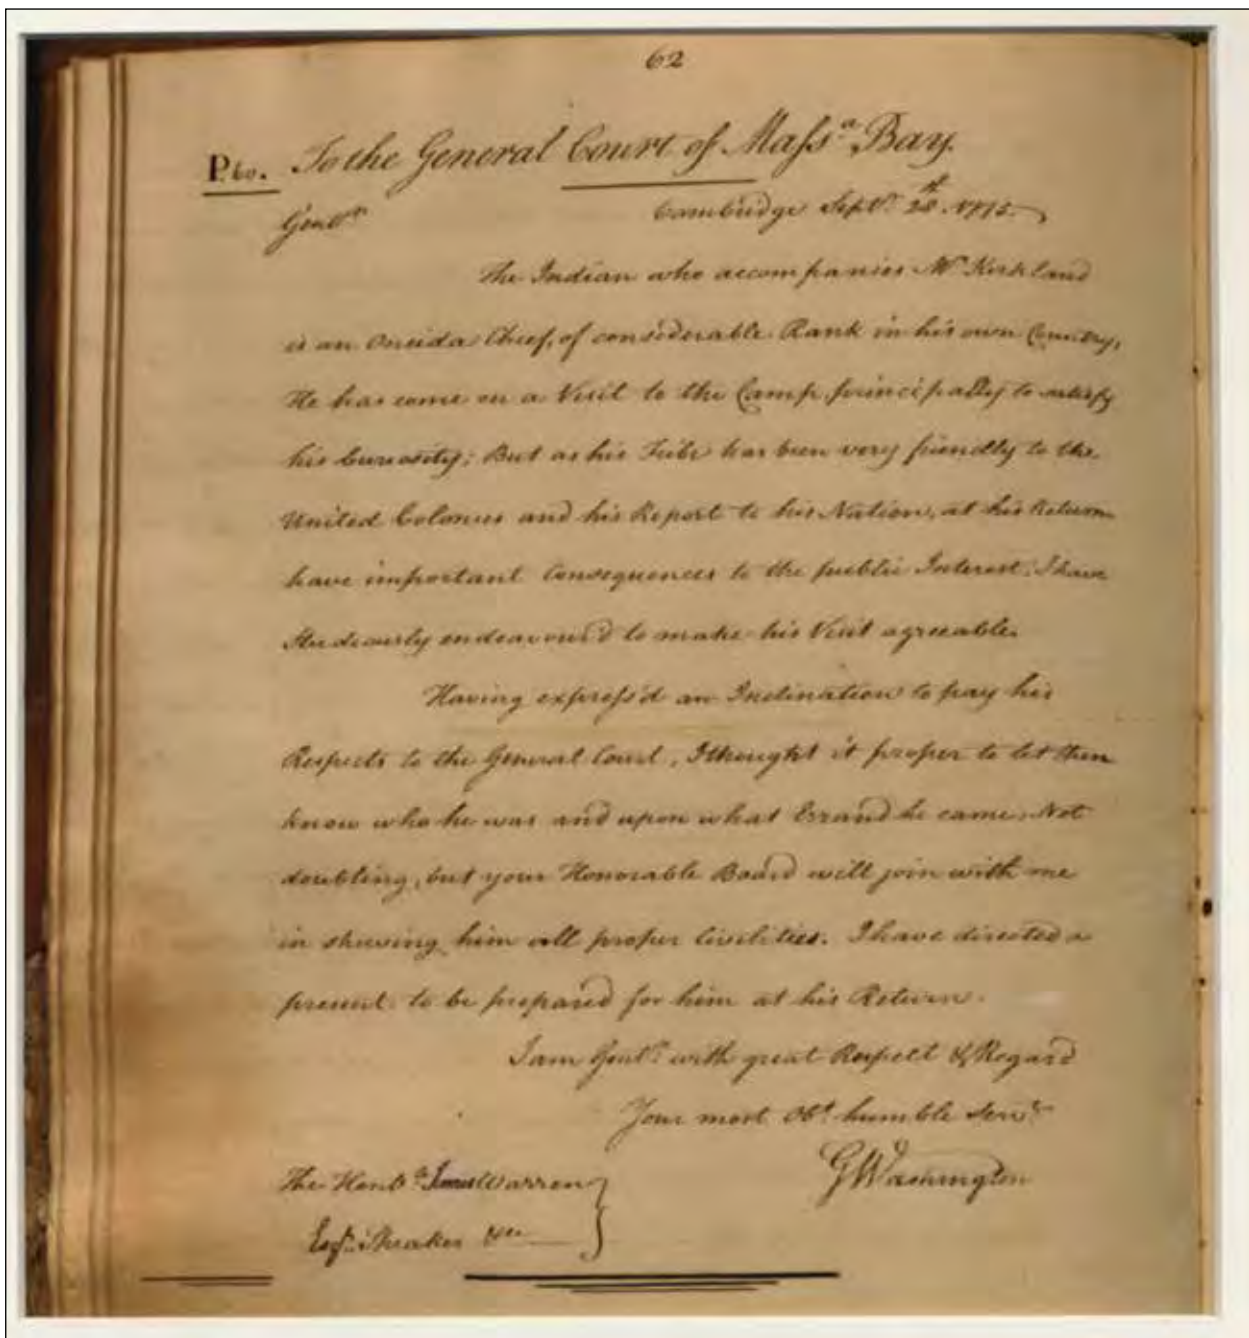 62
P. 60. To the General Court of Massa. Bay.
Gentn. Cambridge Septr. 28th. 1775.
The Indian who accompanies Mr. Kirkland
is an Oneida Chief, of considerable Rank in his own Country,
He has come on a Visit to the Camp principally to satisfy
his Curiosity; But as his Tribe has been very friendly to the
United Colonies and his Report to his Nation, at his Return
have important Consequences to the public Interest: I have
studiously endeavour'd to make his Visit agreeable.
Having express'd an Inclination to pay his
Respects to the General Court, I thought it proper to let them
know who he was and upon what Errand he came. Not
doubting, but your Honorable Board will join with me
in shewing him all proper Civilities. I have directed a
present to be prepared for him at his Return.
I am Gentn. with great Respect & Regard
Your most Obt. humble Servt.
The Honble. James Warren GWashington
Esqr. Speaker &c